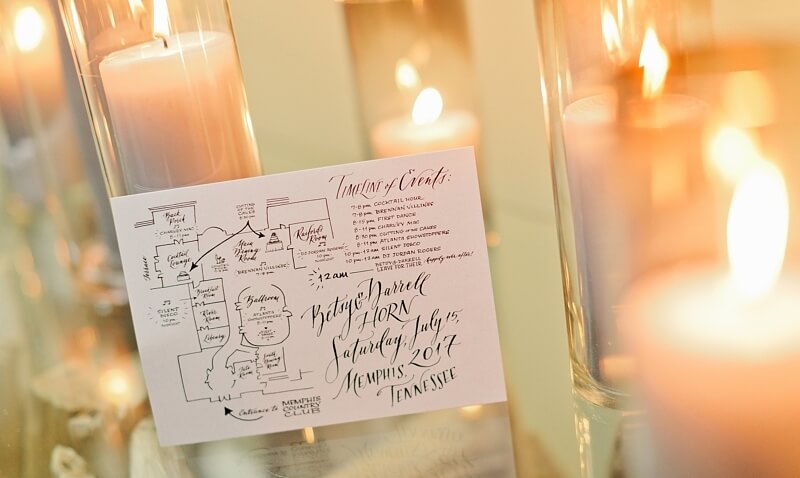 TIMELINE of EVENTS:
7-8 pm COCKTAIL HOUR
7-8 pm BRENNAN VILLINES
8:15 pm FIRST DANCE
8-11 pm CHARLEY MAC
8:30 pm CUTTING of the CAKES
8-11 pm ATLANTA SHOWSTOPPERS
10 pm-12 am SILENT DISCO
10 pm-12 am DJ JORDAN ROGERS
12 am
BETSY & DARRELL
LEAVE FOR THEIR Happily ever after!
Betsy & Darrell
HORN
Saturday, July 15,
2017
MEMPHIS,
TENNESSEE
CUTTING
OF THE
CAKES
8:30 pm
Back
Porch
CHARLEY MAC
8-11 pm
Cocktail
Lounge
Terrace
Main
Dining
Room
BRENNAN VILLINES
7-8 pm
DJ JORDAN ROGERS
10 pm-12 am
Room
SILENT
DISCO
10 pm
Breakfast
Room
Library
Ballroom
ATLANTA
SHOWSTOPPERS
8-11 pm
Room
Entrance to MEMPHIS
COUNTRY
CLUB